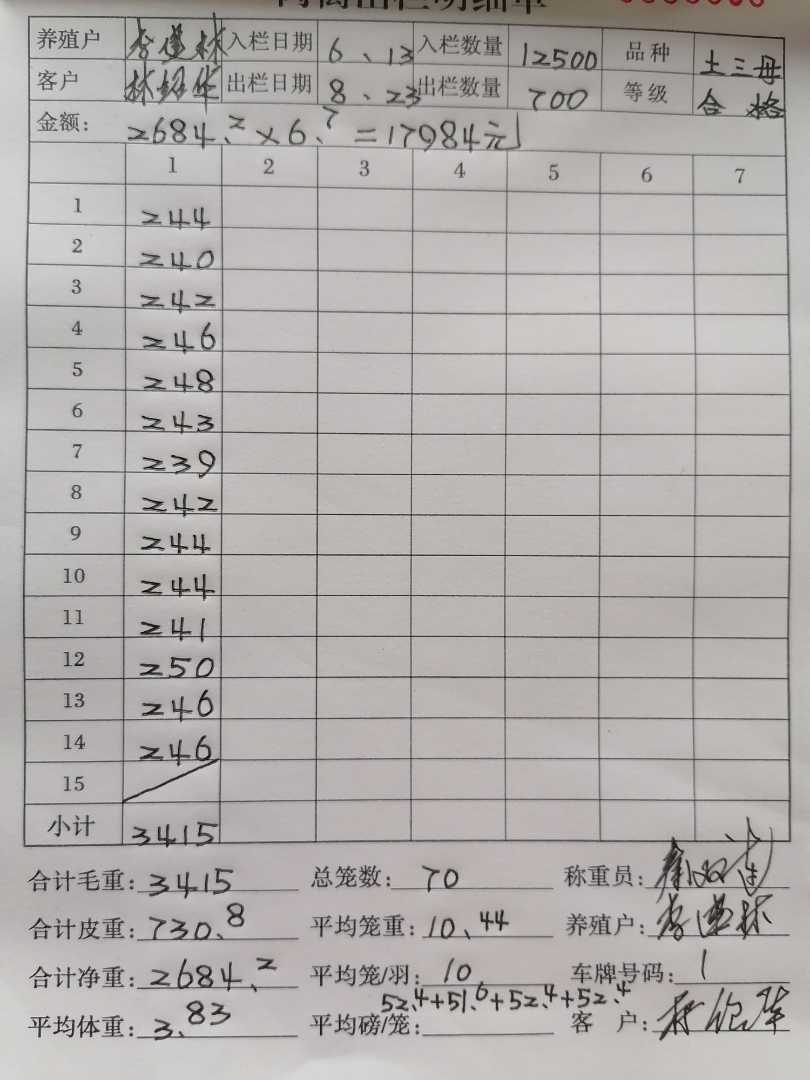 肉禽出栏明细单
养殖户 李道林 入栏日期 6、13 入栏数量 12500 品种 土三母
客户 林绍华 出栏日期 8、23 出栏数量 700 等级 合格
金额: 2684.2×6.7=17984元
1 2 3 4 5 6 7
1 244
2 240
3 242
4 246
5 248
6 243
7 239
8 242
9 244
10 244
11 241
12 250
13 246
14 246
15
小计 3415
合计毛重: 3415 总笼数: 70 称重员:
合计皮重: 730.8 平均笼重: 10、44 养殖户: 李道林
合计净重: 2684.2 平均笼/羽: 10 车牌号码: 1
52.4+51.6+52.4+52.4
平均体重: 3.83 平均磅/笼: 客户: 林绍华